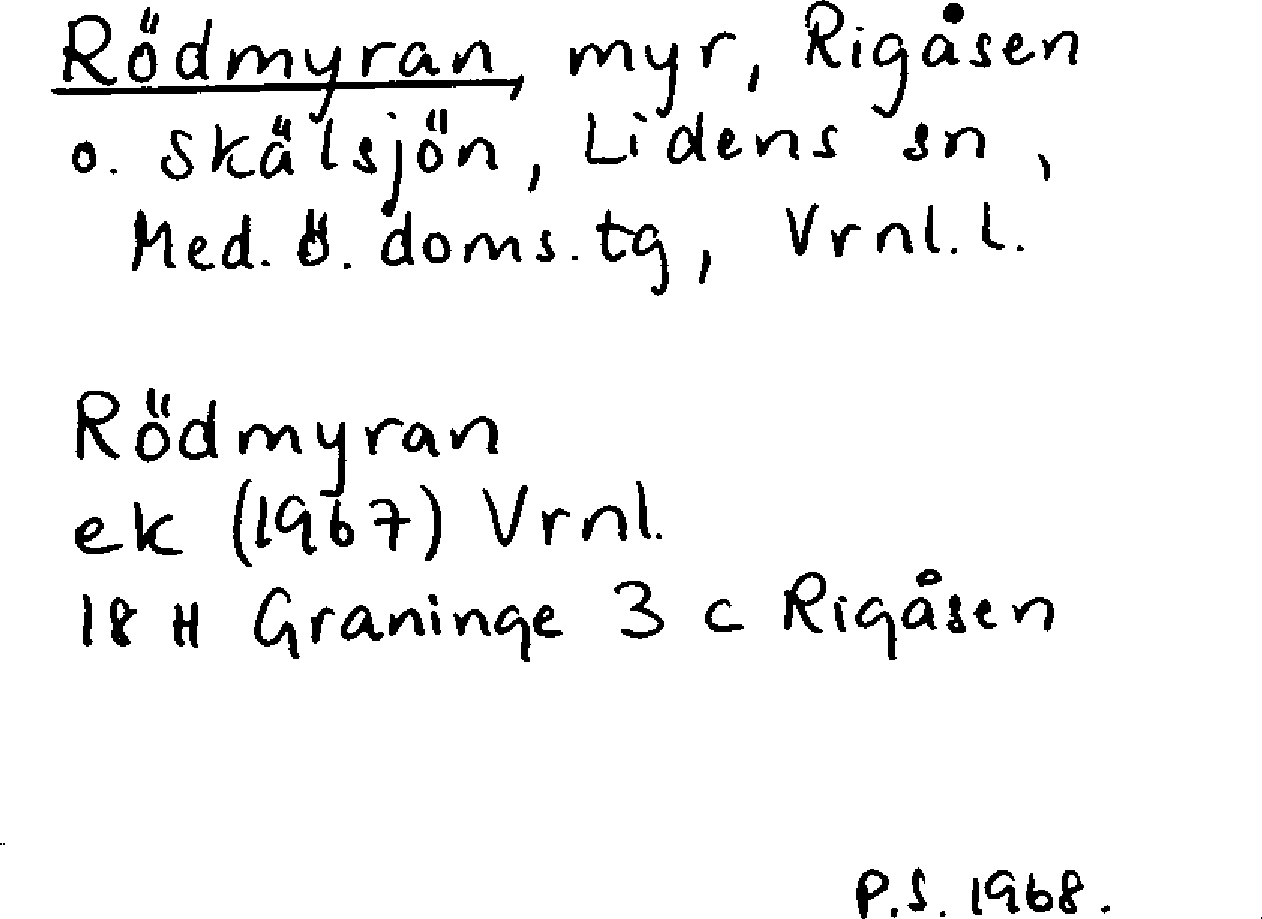 Rödmyran, myr, Rigåsen
o. Skälsjön, Lidens sn,
Med. ö. doms. tg, Vrnl. l.
Rödmyran
ek (1967) Vrnl.
18 H Graninge 3 c Rigåsen
P.S. 1968.